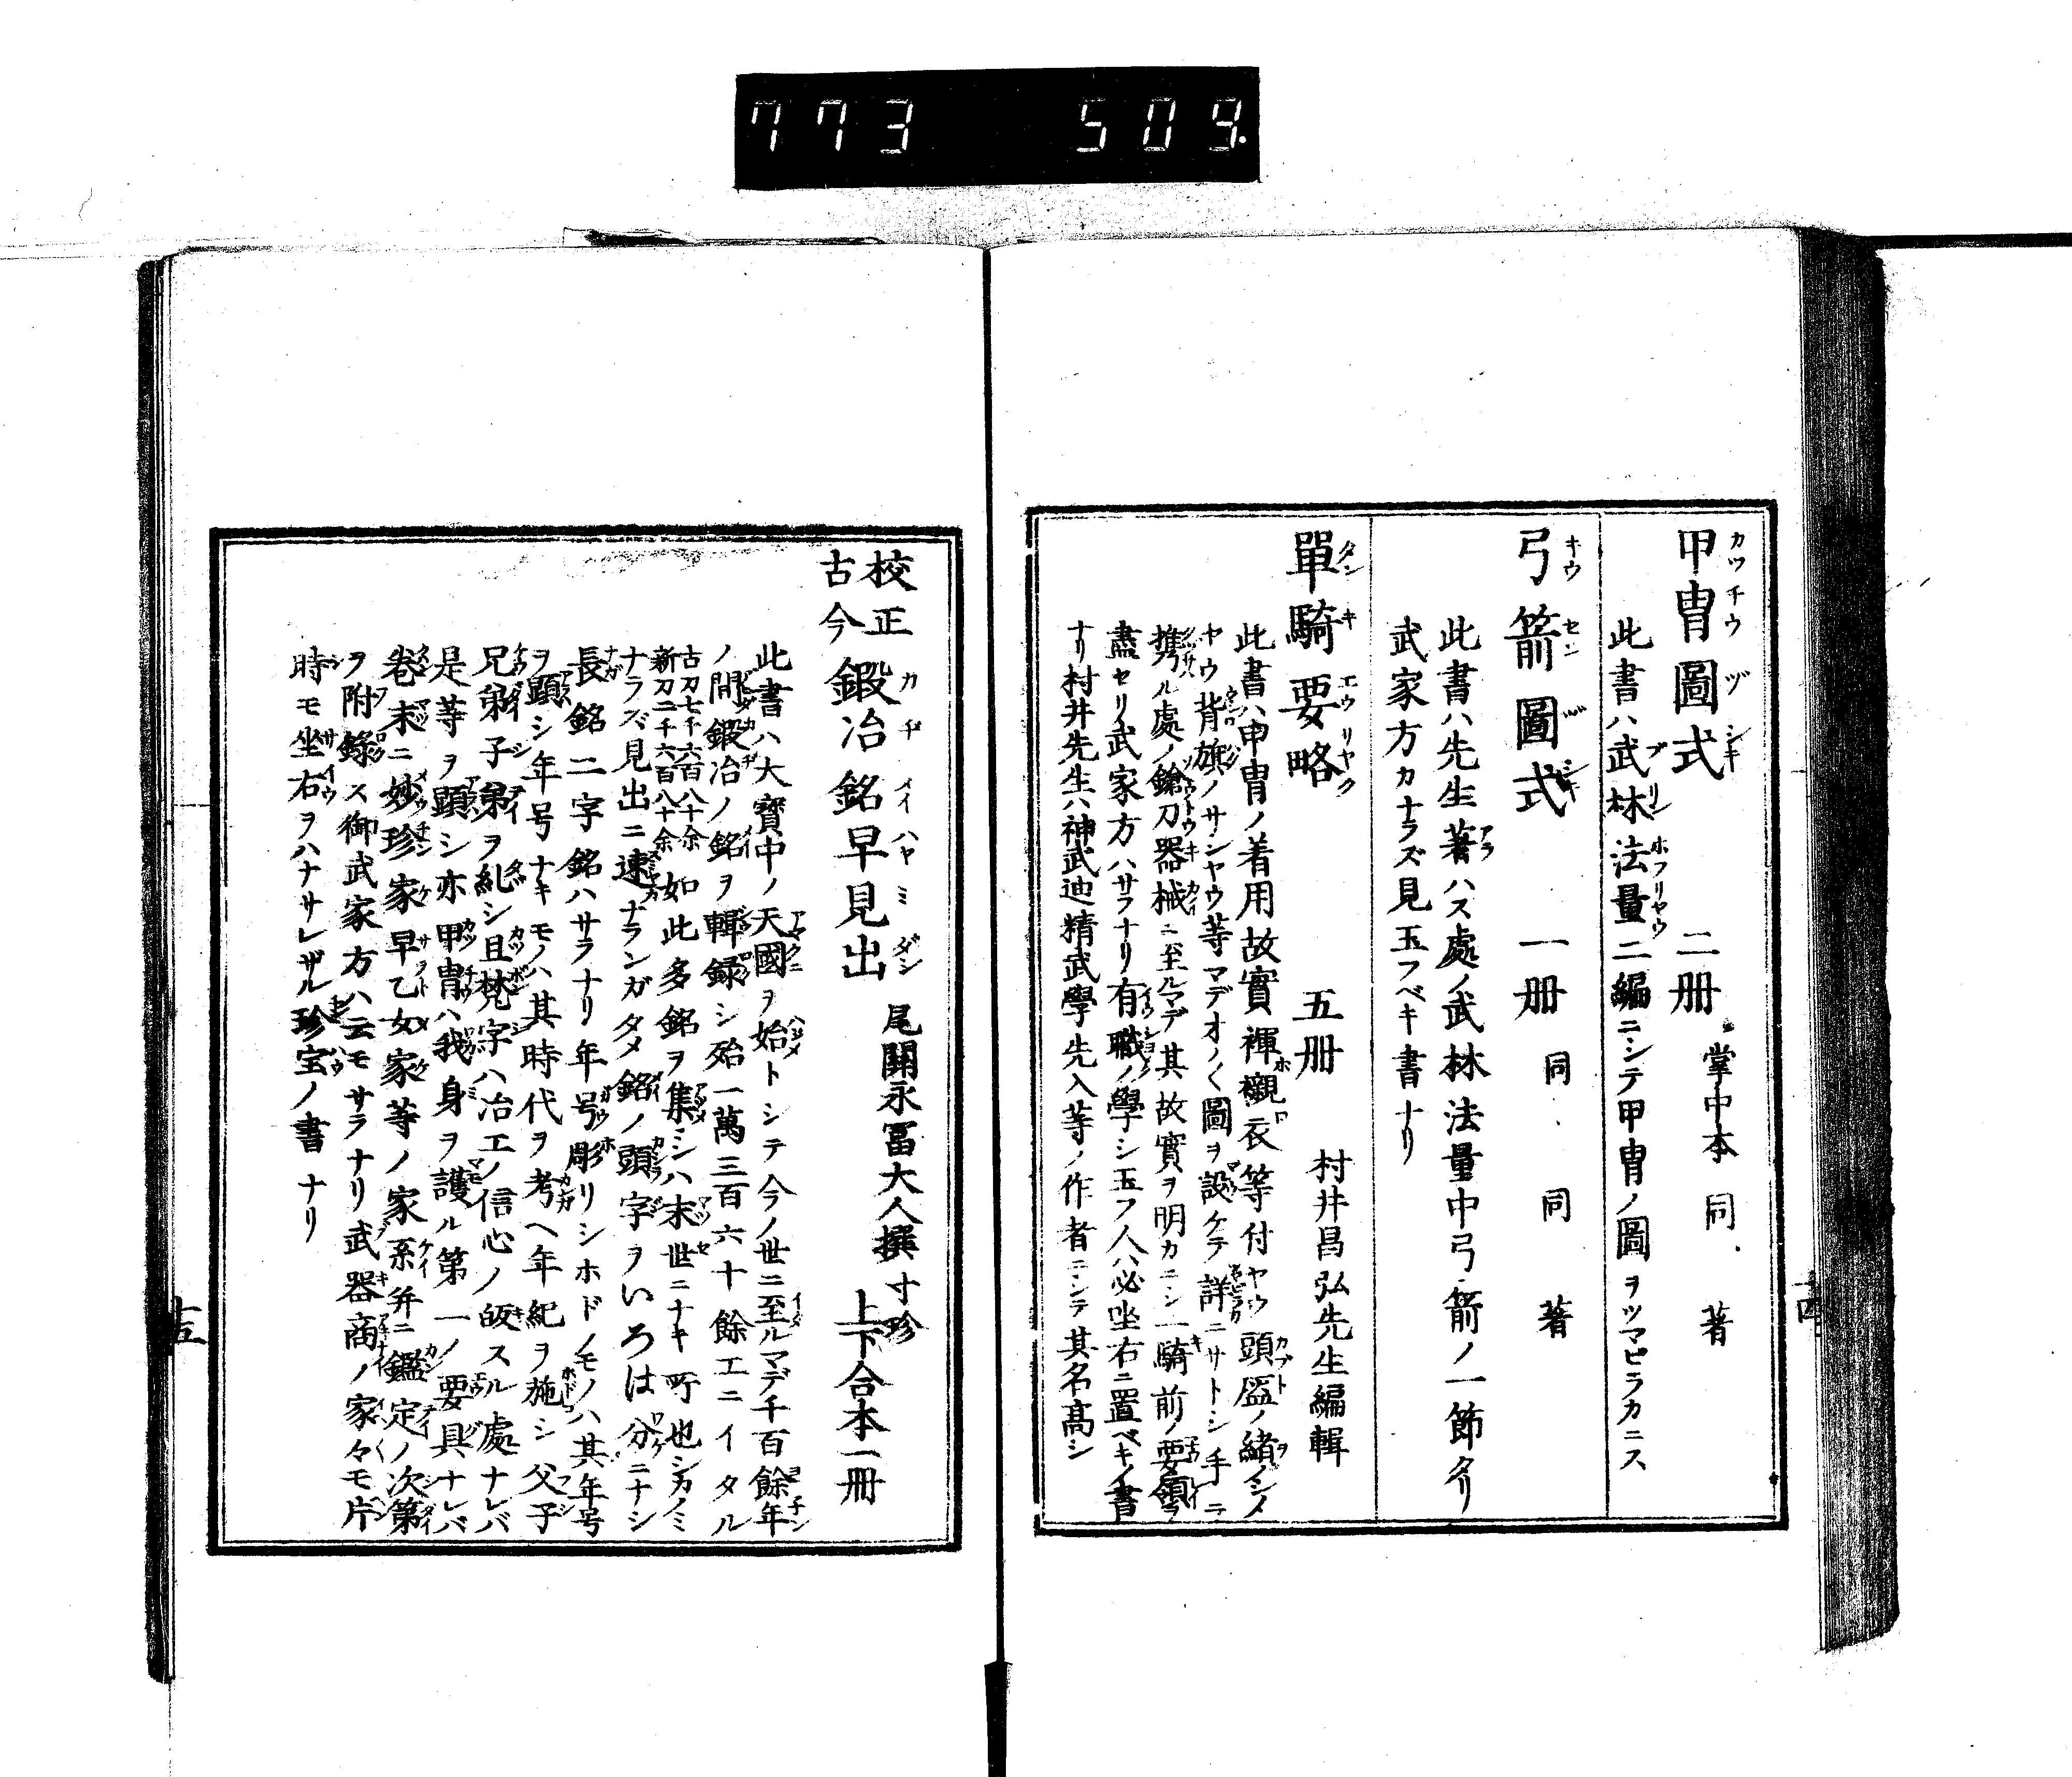 773 509.
甲冑圖式 二册 掌中本 同 著
此書ハ武林法量二編ニシテ甲冑ノ圖ヲツマビラカニス
弓箭圖式 一册 同 同 著
此書ハ先生著ハス處ノ武林法量中弓箭ノ一節タリ
武家方カナラズ見玉フベキ書ナリ
單騎要略 五册 村井昌弘先生編輯
此書ハ甲冑ノ着用故實褌襯衣等付ヤウ頭盔ノ緒ノシメ
ヤウ背旗ノサシヤウ等マデオノ〱圖ヲ設ケテ詳ニサトシ手ニ
携ル處ノ鎗刀器械ニ至ルマデ其故實ヲ明カニシ一騎前ノ要領ヲ
盡セリ武家方ハサラナリ有職ノ學シ玉フ人ハ必坐右ニ置ベキノ書
ナリ村井先生ハ神武迪精武學先入等ノ作者ニシテ其名髙シ
十四
校正古今鍛冶銘早見出 尾關永冨大人撰 寸珍 上下合本一册
此書ハ大寳中ノ天國ヲ始トシテ今ノ世ニ至ルマデ千百餘年
ノ間鍛冶ノ銘ヲ輯録シ殆一萬三百六十餘工ニイタル
古刀七千六百八十余 新刀二千六百八十余 如此多銘ヲ集シハ末世ニナキ所也シカノミ
ナラズ見出ニ速ナランガタメ銘ノ頭字ヲいろは分ニナシ
長銘二字銘ハサラナリ年号彫リシホドノモノハ其年号
ヲ顕シ年号ナキモノハ其時代ヲ考ヘ年紀ヲ施シ父子
兄弟子弟ヲ糺シ且梵字ハ冶工ノ信心ノ皈スル處ナレバ
是等ヲ顕シ亦甲冑ハ我身ヲ護ル第一ノ要具ナレバ
卷末ニ妙珍家早乙女家等ノ家系并ニ鑑定ノ次第
ヲ附錄ス御武家方ハ云モサラナリ武器商ノ家々モ片
時モ坐右ヲハナサレザル珍宝ノ書ナリ
十五